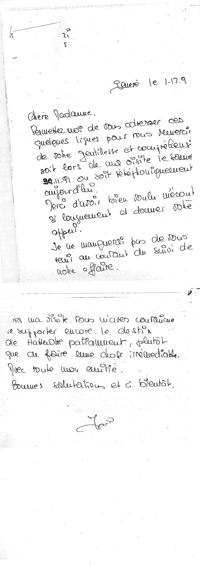 le 1.12.9
Chère Madame,
Permettez moi de vous adresser ces
quelques lignes pour vous remercier
de votre gentillesse et compréhension
soit lors de ma visite le
30.11.91 ou soit téléphoniquement
aujourd'hui.
Merci d'avoir bien voulu m'écouter
si longuement et donner votre
appui.
Je ne manquerai pas de vous
tenir au courant du suivi de
notre affaire.
ma visite. vous m'avez
supporter encore le destin
de patiemment, plutôt
que de faire une chose irrémédiable.
Avec toute mon amitié.
Bonnes salutations et à bientôt.